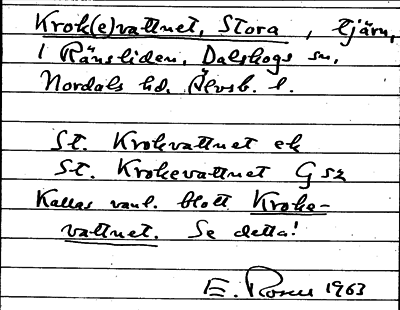 Krok(e)vattnet, Stora, tjärn,
i Ränsliden, Dalskogs sn,
Nordals hd. Älvsb. l.
St. Krokvattnet ek
St. Krokevattnet Gsz
Kallas vanl. blott Kroke-
vattnet. Se detta!
E. Rosen 1963